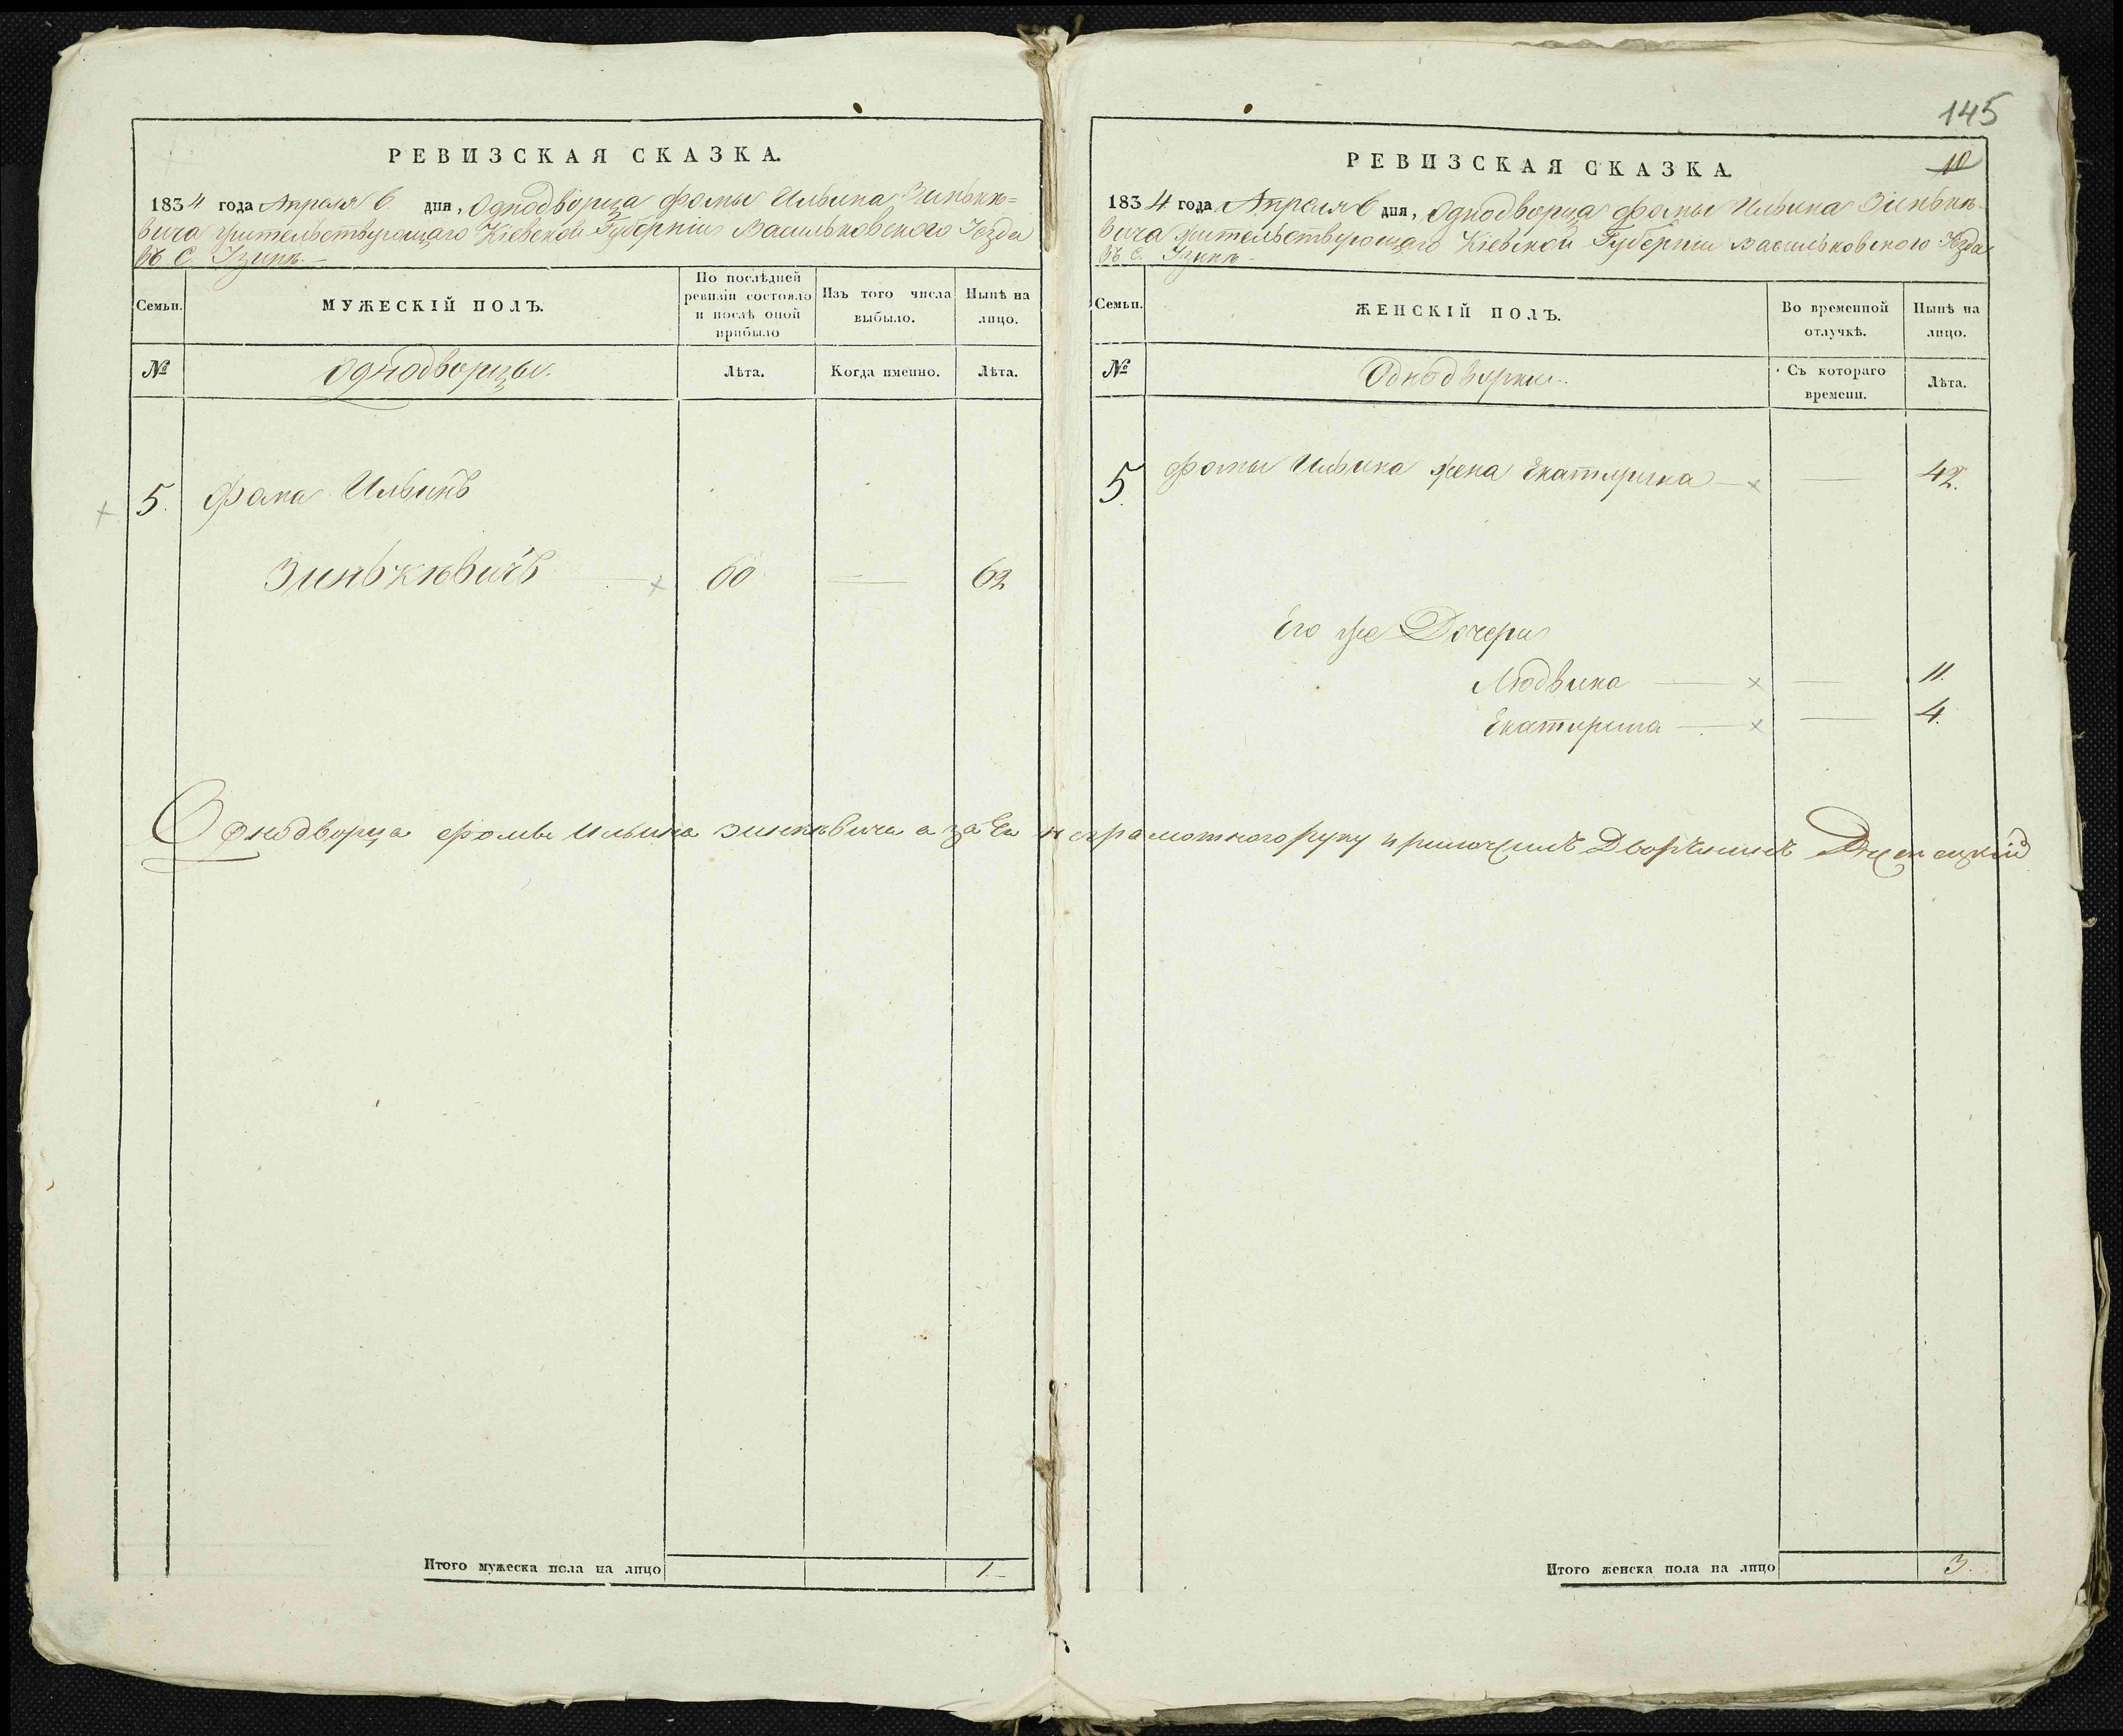 145
РЕВИЗСКАЯ СКАЗКА.
1834 года Апреля 6 дня, Однодворца Фомы Ильина Зинькѣ=
вича жительствующаго Кіевской Губерніи Васильковского Уезда
въ С.
Семьи.
МУЖЕСКІЙ ПОЛЪ.
По послѣдней ревизіи состояло и послѣ оной прибыло
Изъ того числа выбыло.
Нынѣ на лицо.
№
Однодворцы.
Лѣта.
Когда именно.
Лѣта.
5. Фома Ильинъ
Зинькѣвичъ — 60 — 62
Итого мужеска пола на лицо 1
10
РЕВИЗСКАЯ СКАЗКА.
1834 года Апреля 6 дня, Однодворца Фомы Ильина Зинькѣ-
вича жительствующаго Кіевской Губерніи Васильковского Уезда
въ С.
Семьи.
ЖЕНСКІЙ ПОЛЪ.
Во временной отлучкѣ.
Нынѣ на лицо.
№
Однодворки.
Съ котораго времени.
Лѣта.
5. Фомы Ильина жена Екатирина — — 42.
Его же Дочери
Людвика — — 11.
Екатирина — — 4.
Однодворца Фомы Ильина Зинкѣвича а за его неграмотного руку приложилъ Дворѣнинъ
Итого женска пола на лицо 3.